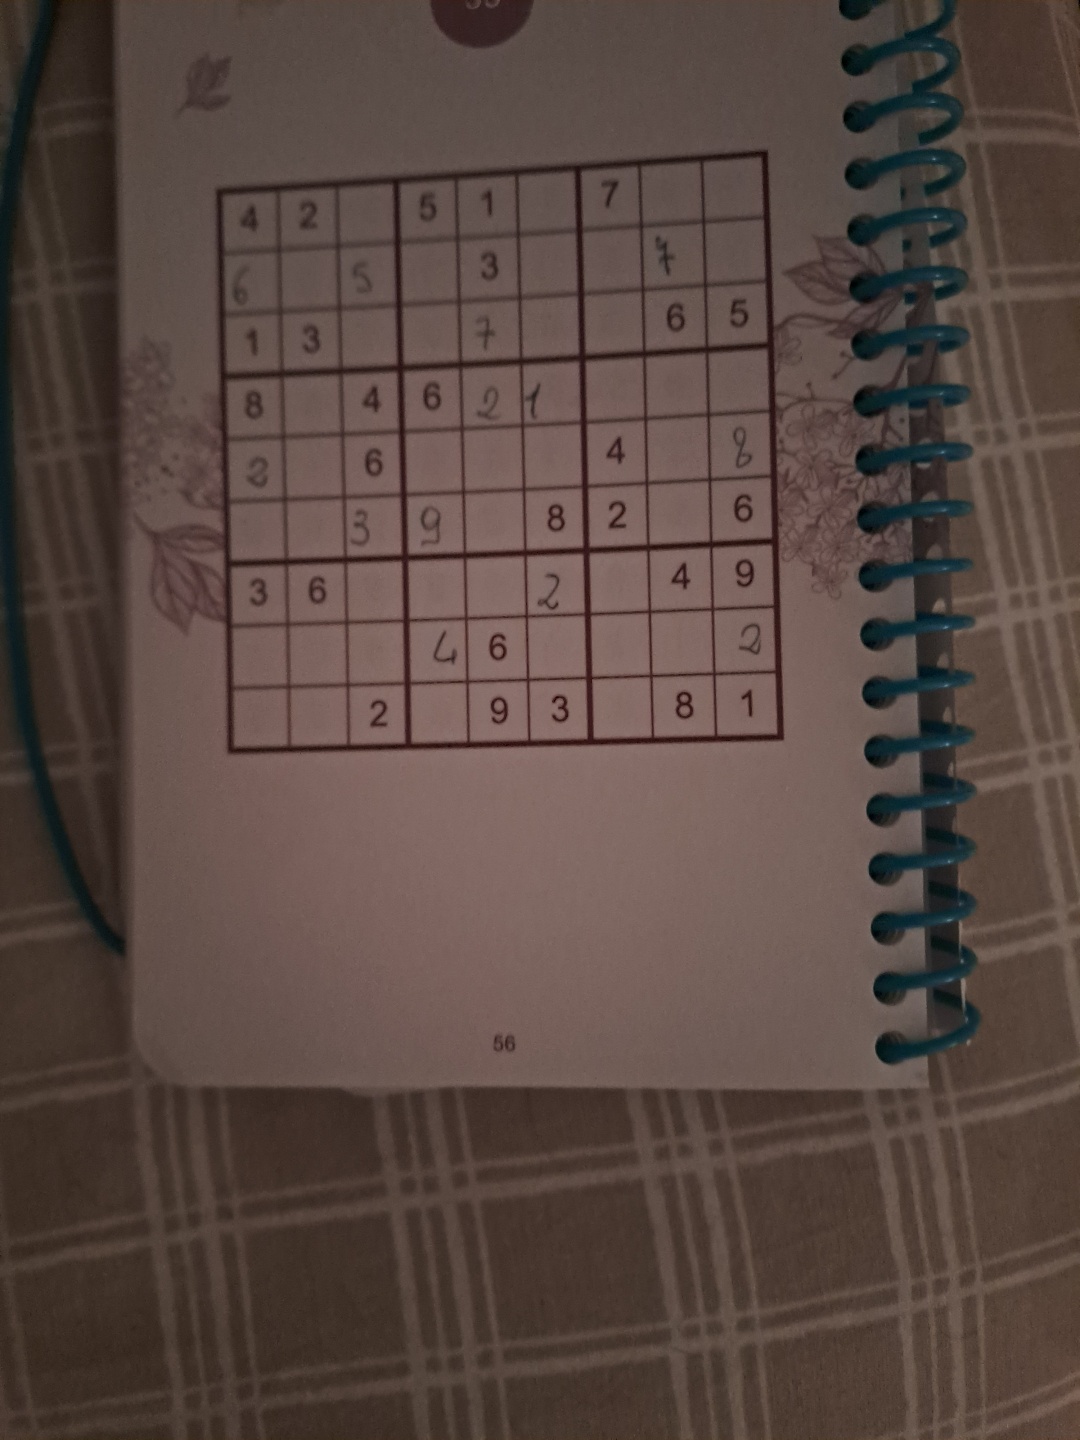 4 2 5 1 7
6 5 3 7
1 3 7 6 5
8 4 6 2 1
2 6 4 8
3 9 8 2 6
3 6 2 4 9
4 6 2
2 9 3 8 1
56